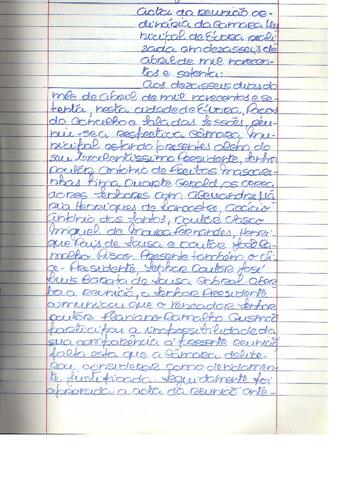 Acta da reunião or-
dinária da Camara Mu-
nicipal de Évora reali-
zada em dezasseis de
abril de mil novecen-
tos e setenta:
Aos dezasseis dias do
mês de abril de mil novecentos e se-
tenta, nesta cidade de Évora, Paços
do Concelho e sala das sessões, reu-
niu-se a respectiva Câmara Mu-
nicipal estando presentes além do
seu Excelentíssimo Presidente, senhor
doutor António de Freitas Mascare-
nhas Lima Duarte Geraldo, os verea-
dores senhores Dom Alexandre Má-
ria Henriques de Lancastre, Acácio
António dos Santos, doutor Vasco
Miguel de Moura Fernandes, Henri-
que Ruis de Sousa e doutor José Ra-
malho Risos. Presente também o Vi-
ce-Presidente, senhor doutor José
Luis Barata de Sousa Cabral. Aber-
ta a reunião, o senhor Presidente
comunicou que o vereador senhor
doutor Floriano Ramalho Gusmão
participou a impossibilidade da
sua comparência à presente reunião
falta esta que a Câmara delibe-
rou considerar como devidamen-
te justificada. Seguidamente foi
aprovada a acta da reunião ante-